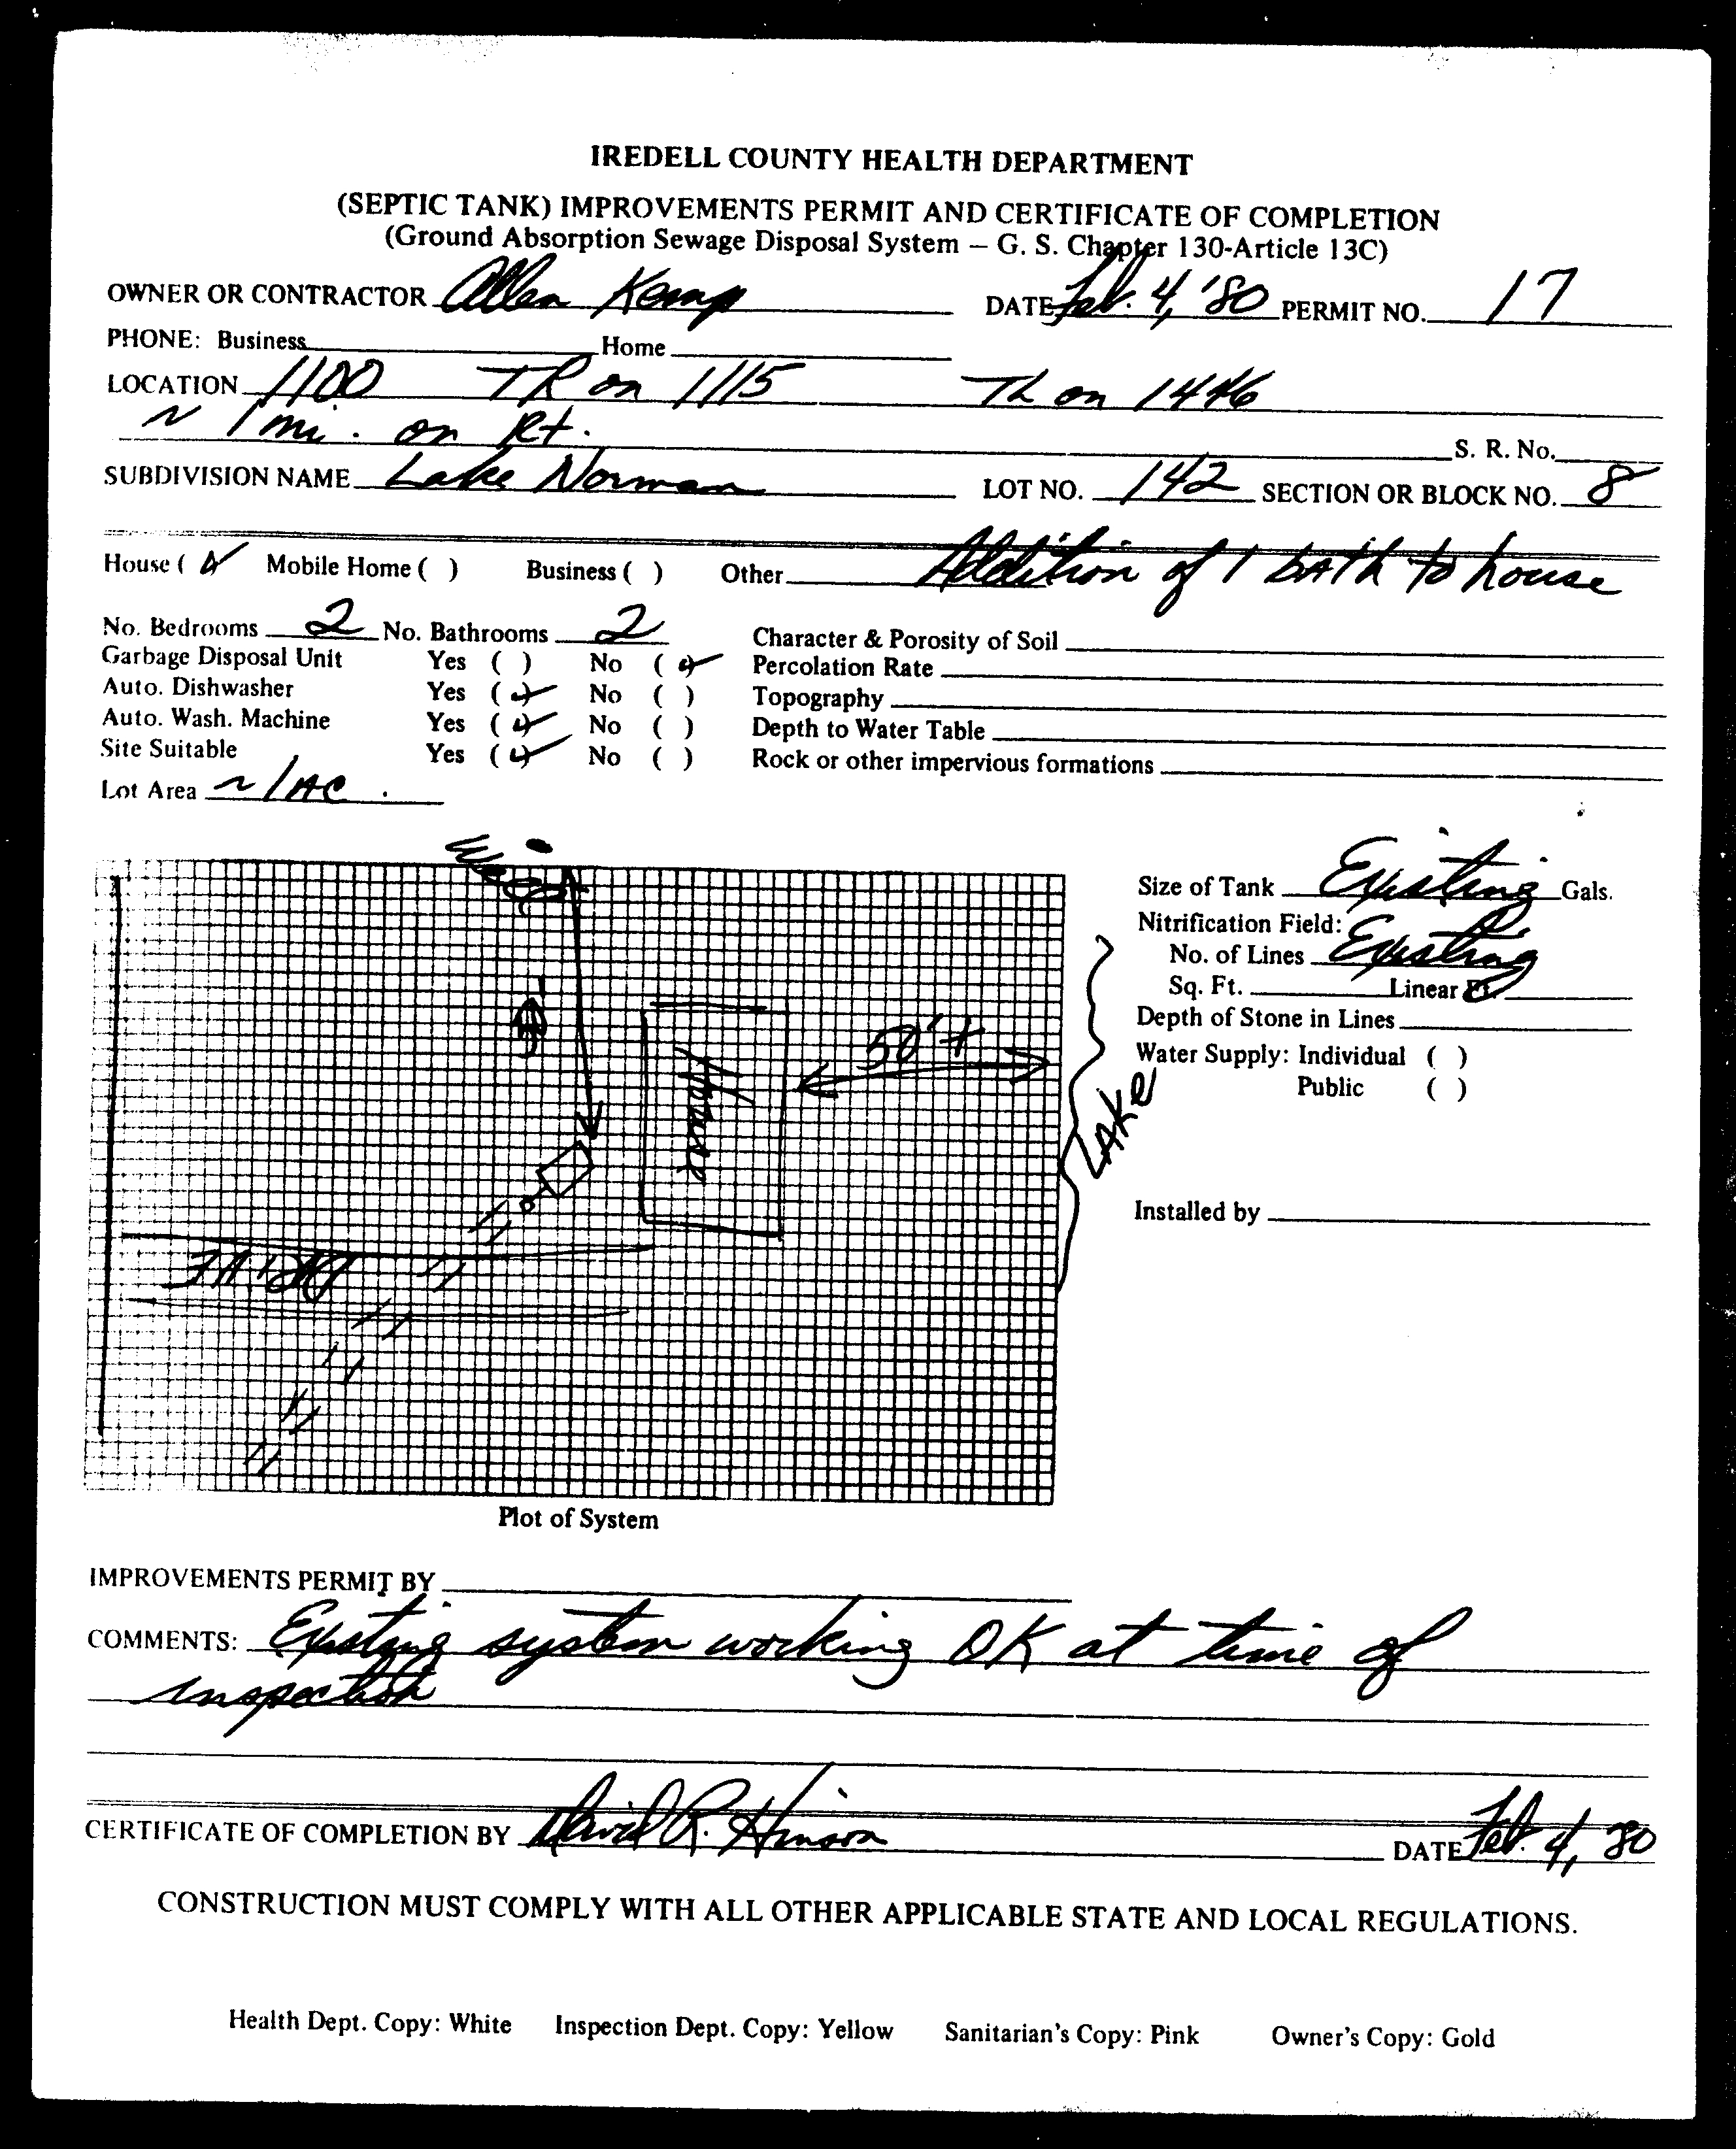 IREDELL COUNTY HEALTH DEPARTMENT
(SEPTIC TANK) IMPROVEMENTS PERMIT AND CERTIFICATE OF COMPLETION
(Ground Absorption Sewage Disposal System – G. S. Chapter 130-Article 13C)
OWNER OR CONTRACTOR Allen Kemp DATE Feb. 4, '80 PERMIT NO. 17
PHONE: Business Home
LOCATION 1100 TR on 1115 TL on 1446
~ 1 mi. on Rt. S. R. No.
SUBDIVISION NAME Lake Norman LOT NO. 142 SECTION OR BLOCK NO. 8
House (✓) Mobile Home ( ) Business ( ) Other Addition of 1 bath to house
No. Bedrooms 2 No. Bathrooms 2 Character & Porosity of Soil
Garbage Disposal Unit Yes ( ) No (✓) Percolation Rate
Auto. Dishwasher Yes (✓) No ( ) Topography
Auto. Wash. Machine Yes (✓) No ( ) Depth to Water Table
Site Suitable Yes (✓) No ( ) Rock or other impervious formations
Lot Area ~ 1 AC.
Size of Tank Existing Gals.
Nitrification Field:
No. of Lines Existing
Sq. Ft. Linear Ft.
Depth of Stone in Lines
Water Supply: Individual ( )
Public ( )
Installed by
House
50'+
LAKE
DRIVE
Plot of System
IMPROVEMENTS PERMIT BY
COMMENTS: Existing system working OK at time of
inspection
CERTIFICATE OF COMPLETION BY David R. Hinson DATE Feb. 4, 80
CONSTRUCTION MUST COMPLY WITH ALL OTHER APPLICABLE STATE AND LOCAL REGULATIONS.
Health Dept. Copy: White Inspection Dept. Copy: Yellow Sanitarian's Copy: Pink Owner's Copy: Gold